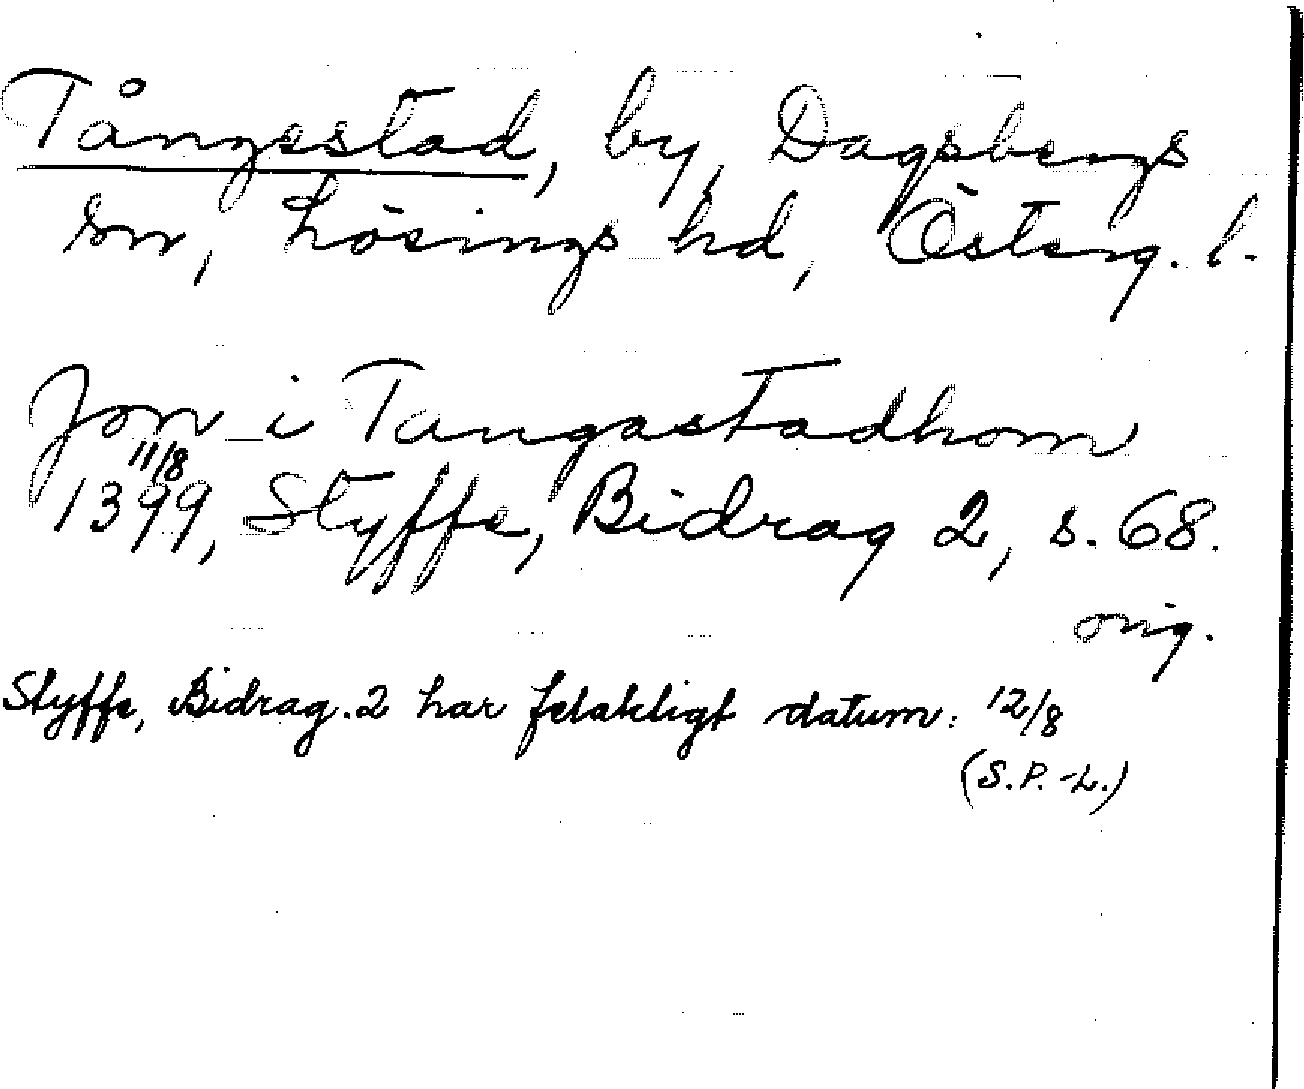 Tångestad, by, Dagsbergs
sn, Lösings hd, Österg. l.
Jon i Tangastadhom
11/8
1399, Styffe, Bidrag 2, s. 68.
orig.
Styffe, Bidrag. 2 har felaktigt datum: 12/8
(S.P.-L.)